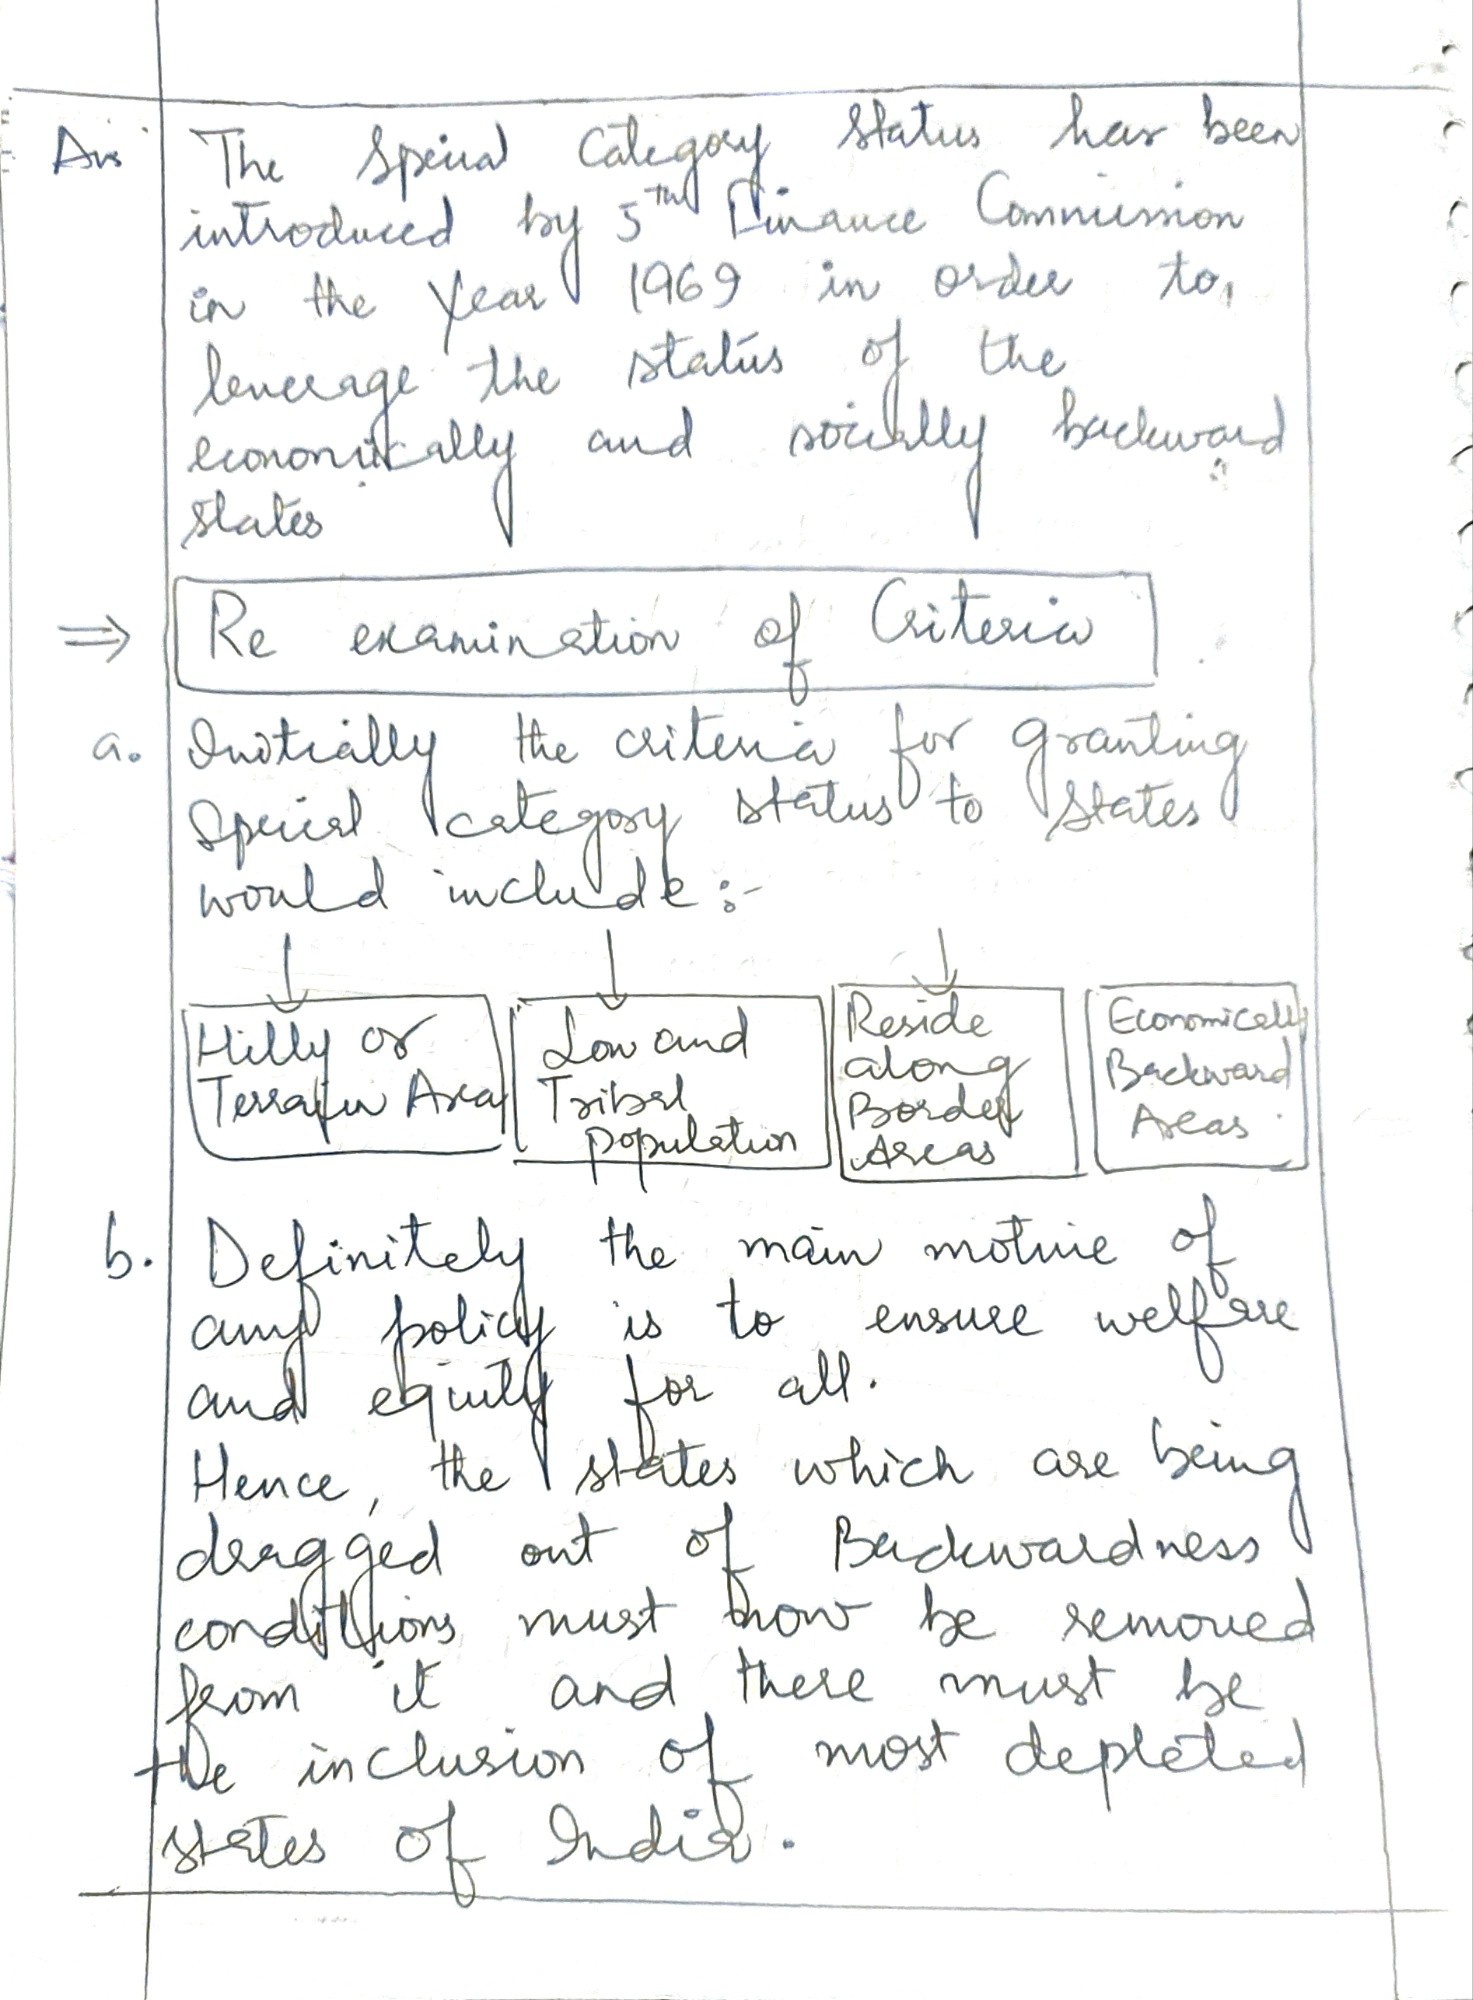 Ans The Special Category Status has been
introduced by 5th Finance Commission
in the Year 1969 in order to,
leverage the status of the
economically and socially backward
states
⇒ Re examination of Criteria
a. Initially the criteria for granting
Special category status to States
would include :-
Hilly or
Terrain Area
Low and
Tribal
population
Reside
along
Border
Areas
Economically
Backward
Areas
b. Definitely the main motive of
any policy is to ensure welfare
and equity for all.
Hence, the states which are being
dragged out of Backwardness
conditions must now be removed
from it and there must be
the inclusion of most depleted
states of India.